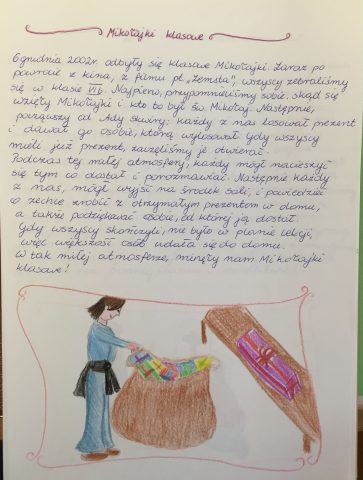 Mikołajki klasowe
6 grudnia 2002r. odbyły się klasowe Mikołajki. Zaraz po
powrocie z kina, z filmu pt. „Zemsta”, wszyscy zebraliśmy
się w klasie VIb. Najpierw, przypomnieliśmy sobie, skąd się
wzięły Mikołajki i kto to był św. Mikołaj. Następnie,
począwszy od Ady Skwiry, każdy z nas losował prezent
i dawał go osobie, którą wylosował. Gdy wszyscy
mieli już prezent, zaczęliśmy je otwierać.
Podczas tej miłej atmosfery, każdy mógł nacieszyć
się tym co dostał i porozmawiać. Następnie każdy
z nas, mógł wyjść na środek sali, i powiedzieć
co zechce zrobić z otrzymałym prezentem w domu,
a także podziękować osobie, od której ją dostał.
Gdy wszyscy skończyli, nie było w planie lekcji,
więc większość osób udała się do domu.
W tak miłej atmosferze, minęły nam Mikołajki
klasowe!